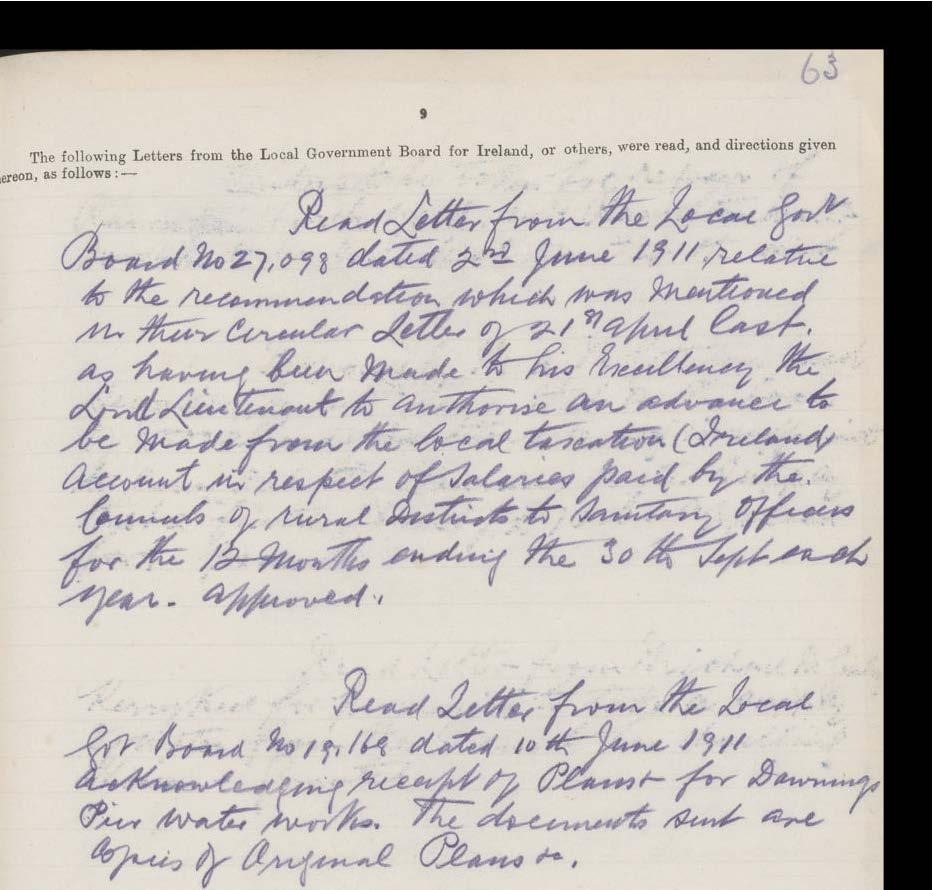 63
9
The following Letters from the Local Government Board for Ireland, or others, were read, and directions given
ereon, as follows:—
Read Letter from the Local Govt.
Board No 27,098 dated 2nd June 1911, relative
to the recommendation which was mentioned
in their Circular Letter of 21st April last.
as having been made to his Excellency the
Lord Lieutenant to authorise an advance to
be made from the local taxation (Ireland)
Account in respect of Salaries paid by the.
Councils of rural Districts to Sanitary Officers
for the 12 Months ending the 30th Sept each
year. approved.
Read Letter from the Local
Gov Board No 19,169 dated 10th June 1911
acknowledging receipt of Plans for Downings
Pier water works. The documents sent are
Copies of Original Plans &c.